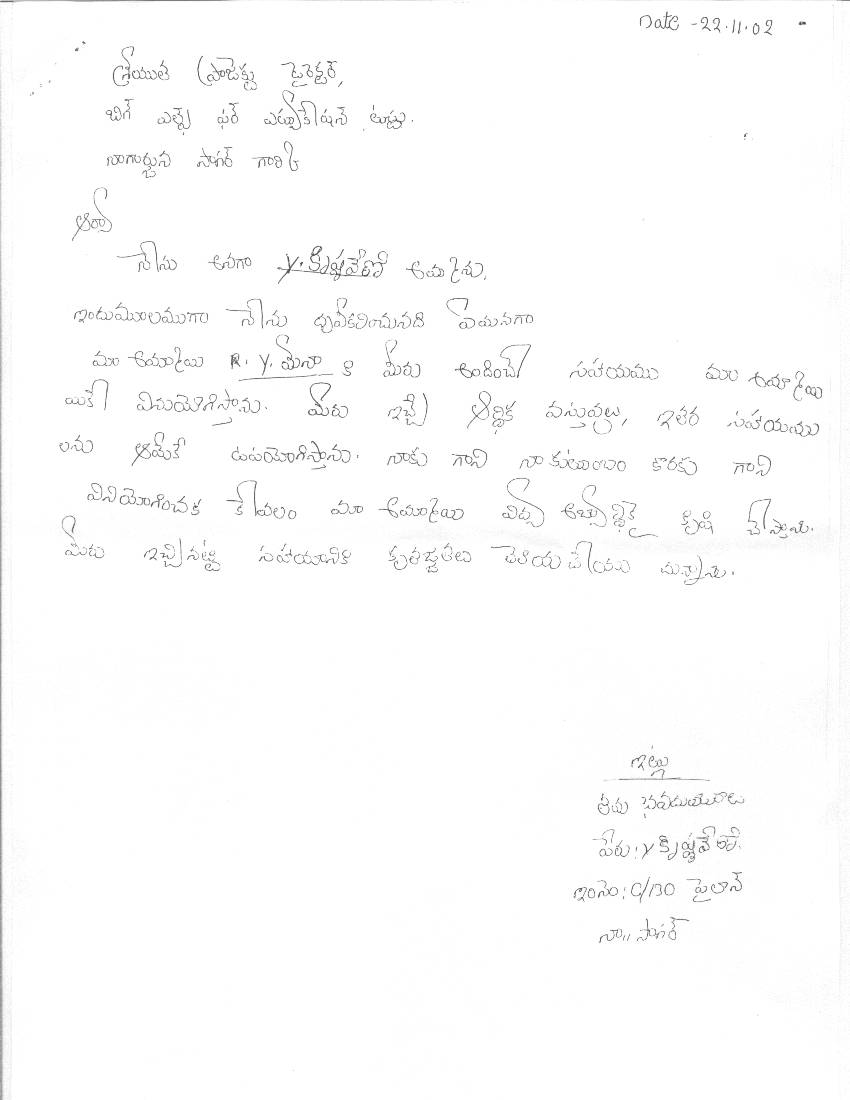 Date - 22.11.02
శ్రీయుత ప్రాజెక్టు డైరెక్టర్,
బిగ్ హెల్ప్ ఫర్ ఎడ్యుకేషన్ ట్రస్టు.
నాగార్జున సాగర్ గారికి
ఆర్యా
నేను అనగా y. కృష్ణవేణి అమ్మను.
ఇందుమూలముగా నేను ధృవీకరించునది ఏమనగా
మా అమ్మాయి R. Y. మీనా కి మీరు అందించే సహాయము మా అమ్మాయి
యికే వినుయోగిస్తాను. మీరు ఇచ్చే ఆర్థిక వస్తువులు, ఇతర సహాయము
లను ఆమెకే ఉపయోగిస్తాను. నాకు గాని నా కుటుంబం కొరకు గాని
వినియోగించక కేవలం మా అమ్మాయి విద్యా అభివృద్ధికై కృషి చేస్తాను.
మీరు ఇచ్చినట్టి సహాయానికి కృతజ్ఞతలు తెలియచేయు చున్నాను.
ఇట్లు
తమ భవదీయురాలు
పేరు: y కృష్ణవేణి.
ఇం నెం: C/130 పైలాన్
నా,, సాగర్